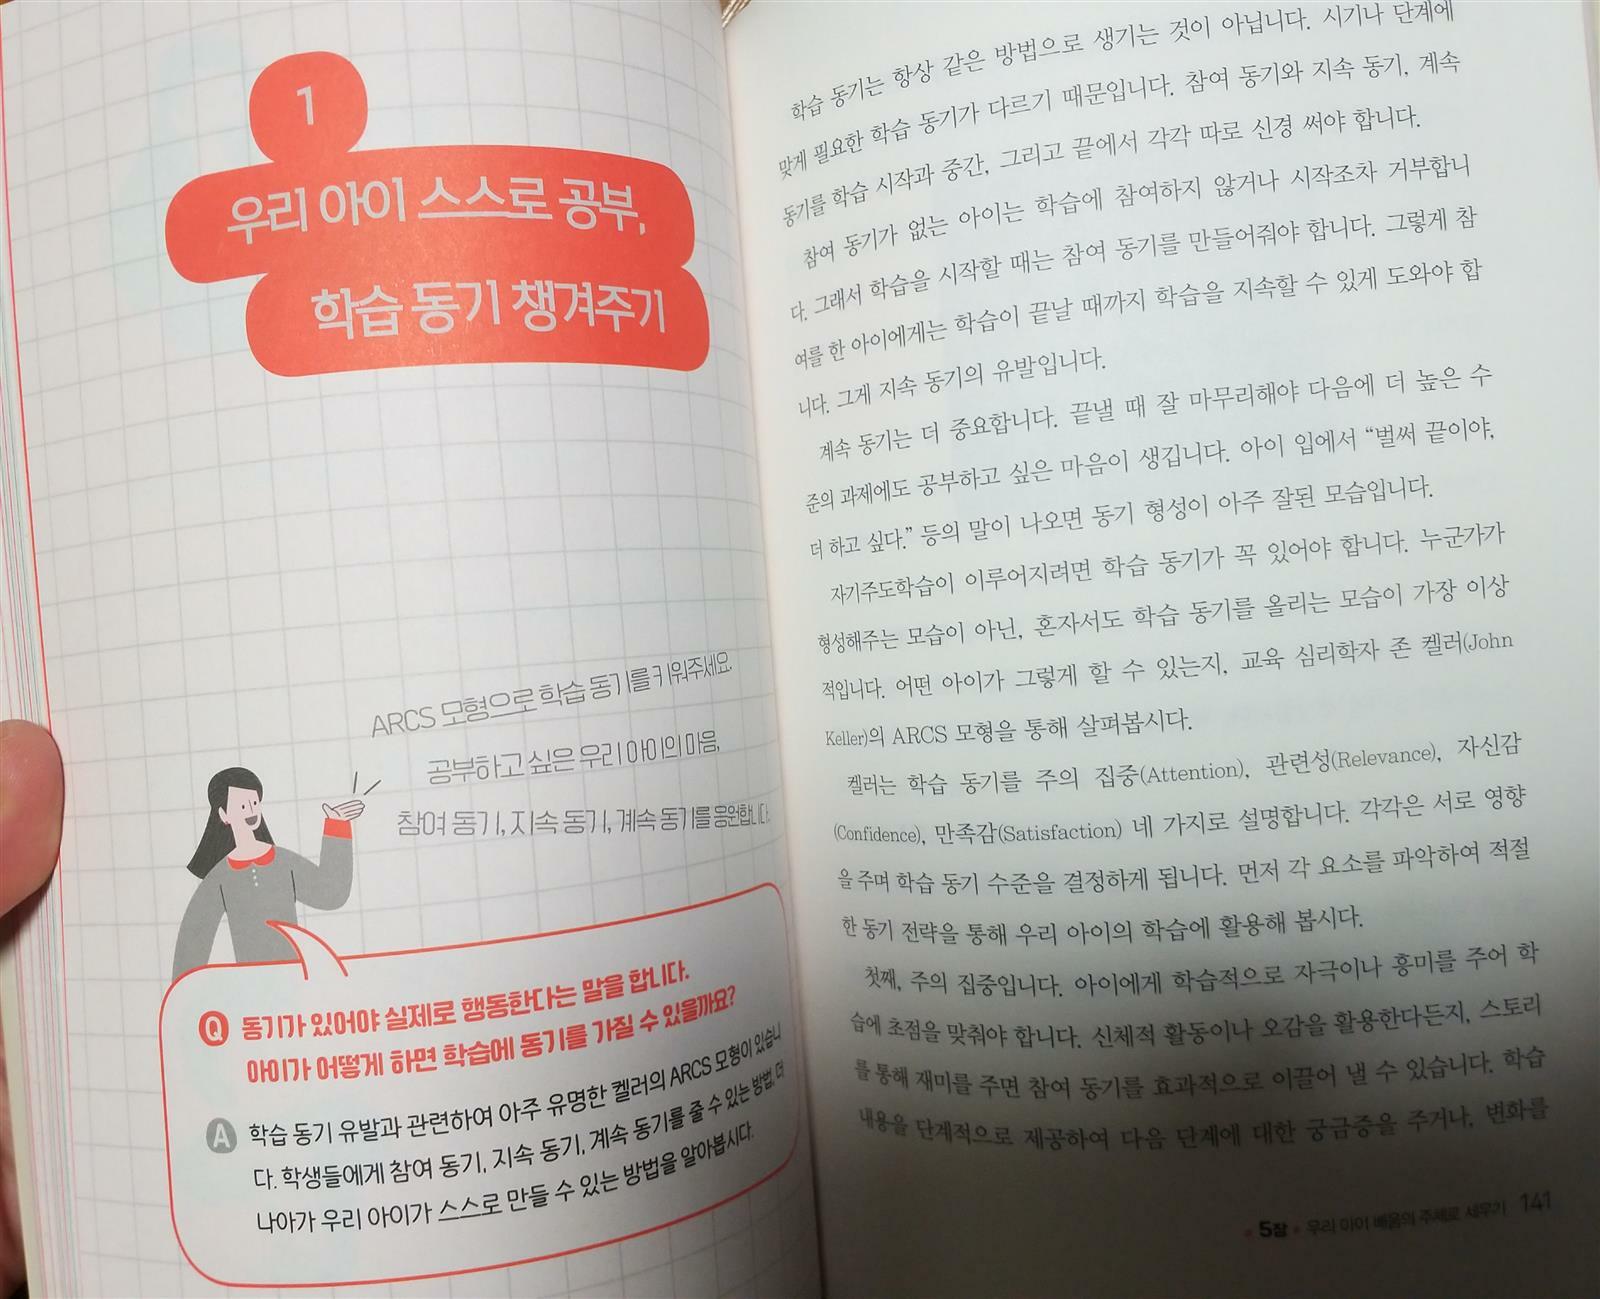 1
우리 아이 스스로 공부,
학습 동기 챙겨주기
ARCS 모형으로 학습 동기를 키워주세요.
공부하고 싶은 우리 아이의 마음,
참여 동기, 지속 동기, 계속 동기를 응원합니다.
Q 동기가 있어야 실제로 행동한다는 말을 합니다.
아이가 어떻게 하면 학습에 동기를 가질 수 있을까요?
A 학습 동기 유발과 관련하여 아주 유명한 켈러의 ARCS 모형이 있습니
다. 학생들에게 참여 동기, 지속 동기, 계속 동기를 줄 수 있는 방법, 더
나아가 우리 아이가 스스로 만들 수 있는 방법을 알아봅시다.
학습 동기는 항상 같은 방법으로 생기는 것이 아닙니다. 시기나 단계에
맞게 필요한 학습 동기가 다르기 때문입니다. 참여 동기와 지속 동기, 계속
동기를 학습 시작과 중간, 그리고 끝에서 각각 따로 신경 써야 합니다.
참여 동기가 없는 아이는 학습에 참여하지 않거나 시작조차 거부합니
다. 그래서 학습을 시작할 때는 참여 동기를 만들어줘야 합니다. 그렇게 참
여를 한 아이에게는 학습이 끝날 때까지 학습을 지속할 수 있게 도와야 합
니다. 그게 지속 동기의 유발입니다.
계속 동기는 더 중요합니다. 끝낼 때 잘 마무리해야 다음에 더 높은 수
준의 과제에도 공부하고 싶은 마음이 생깁니다. 아이 입에서 “벌써 끝이야,
더 하고 싶다.” 등의 말이 나오면 동기 형성이 아주 잘된 모습입니다.
자기주도학습이 이루어지려면 학습 동기가 꼭 있어야 합니다. 누군가가
형성해주는 모습이 아닌, 혼자서도 학습 동기를 올리는 모습이 가장 이상
적입니다. 어떤 아이가 그렇게 할 수 있는지, 교육 심리학자 존 켈러(John
Keller)의 ARCS 모형을 통해 살펴봅시다.
켈러는 학습 동기를 주의 집중(Attention), 관련성(Relevance), 자신감
(Confidence), 만족감(Satisfaction) 네 가지로 설명합니다. 각각은 서로 영향
을 주며 학습 동기 수준을 결정하게 됩니다. 먼저 각 요소를 파악하여 적절
한 동기 전략을 통해 우리 아이의 학습에 활용해 봅시다.
첫째, 주의 집중입니다. 아이에게 학습적으로 자극이나 흥미를 주어 학
습에 초점을 맞춰야 합니다. 신체적 활동이나 오감을 활용한다든지, 스토리
를 통해 재미를 주면 참여 동기를 효과적으로 이끌어 낼 수 있습니다. 학습
내용을 단계적으로 제공하여 다음 단계에 대한 궁금증을 주거나, 변화를
5장 • 우리 아이 배움의 주체로 세우기 141